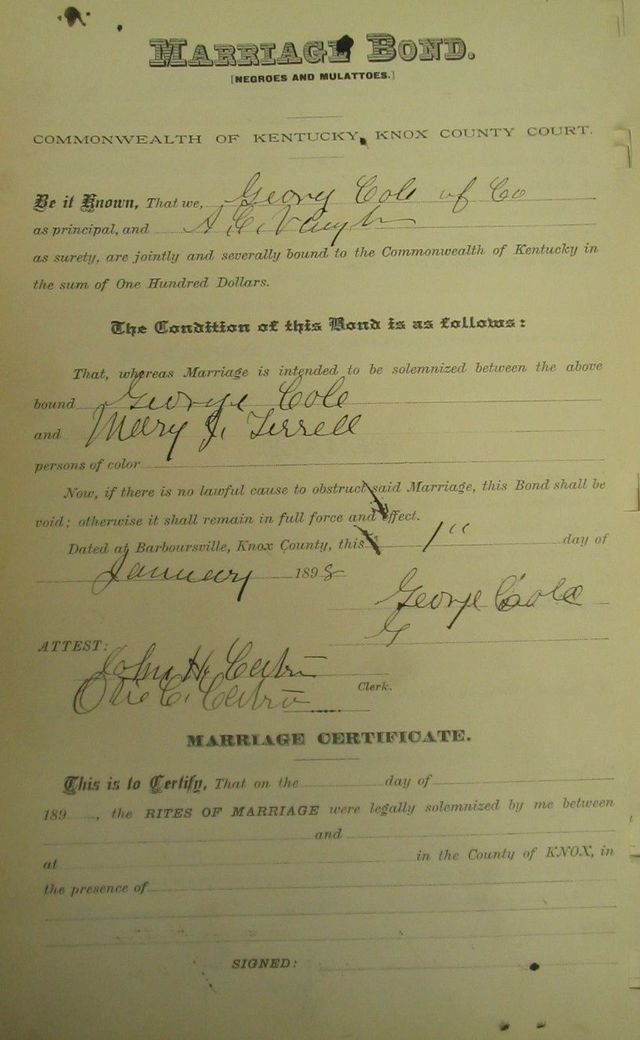 MARRIAGE BOND.
[NEGROES AND MULATTOES.]
COMMONWEALTH OF KENTUCKY, KNOX COUNTY COURT.
Be it Known, That we, Georg Cole of Co
as principal, and A. C. Vaughn
as surety, are jointly and severally bound to the Commonwealth of Kentucky in
the sum of One Hundred Dollars.
The Condition of this Bond is as follows:
That, whereas Marriage is intended to be solemnized between the above
bound George Cole
and Mary J. Terrell
persons of color
Now, if there is no lawful cause to obstruct said Marriage, this Bond shall be
void; otherwise it shall remain in full force and effect.
Dated at Barboursville, Knox County, this 1" day of
January 1898
George Cole
ATTEST:
John H. Catron
C. Catron
Clerk.
MARRIAGE CERTIFICATE.
This is to Certify, That on the day of
189 , the RITES OF MARRIAGE were legally solemnized by me between
and
at in the County of KNOX, in
the presence of
SIGNED: